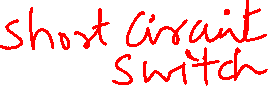 Short Circuit
Switch